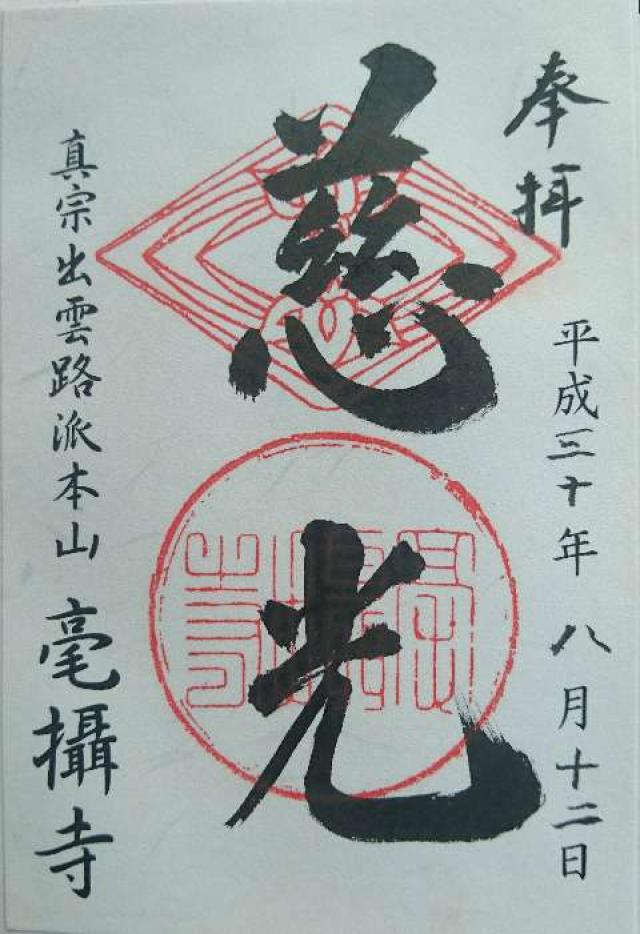 奉拝
平成三十年 八月十二日
慈光
真宗出雲路派本山 毫攝寺